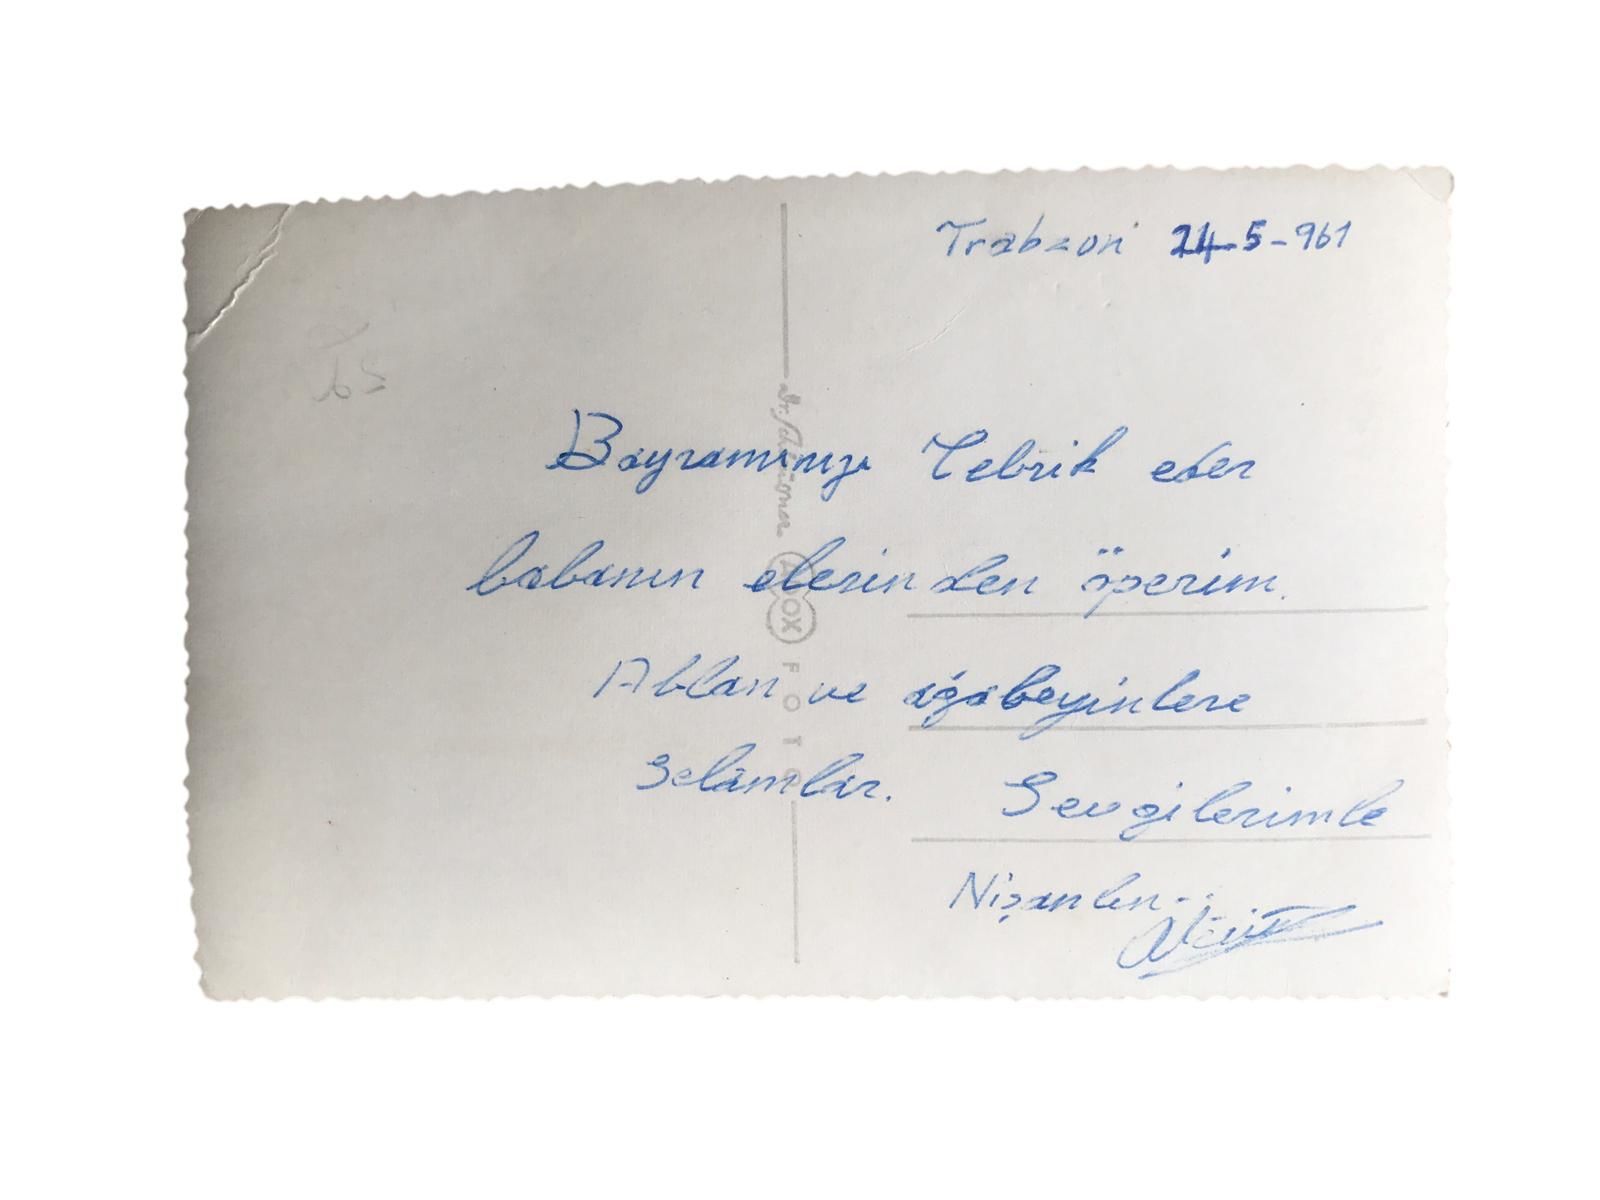 Trabzon 24-5-961
Bayramınızı Tebrik eder
babanın elerinden öperim.
Ablan ve ağabeyinlere
Selâmlar. Sevgilerimle
Nişanlın..
Dr. Schleussner
ADOX
FOTO